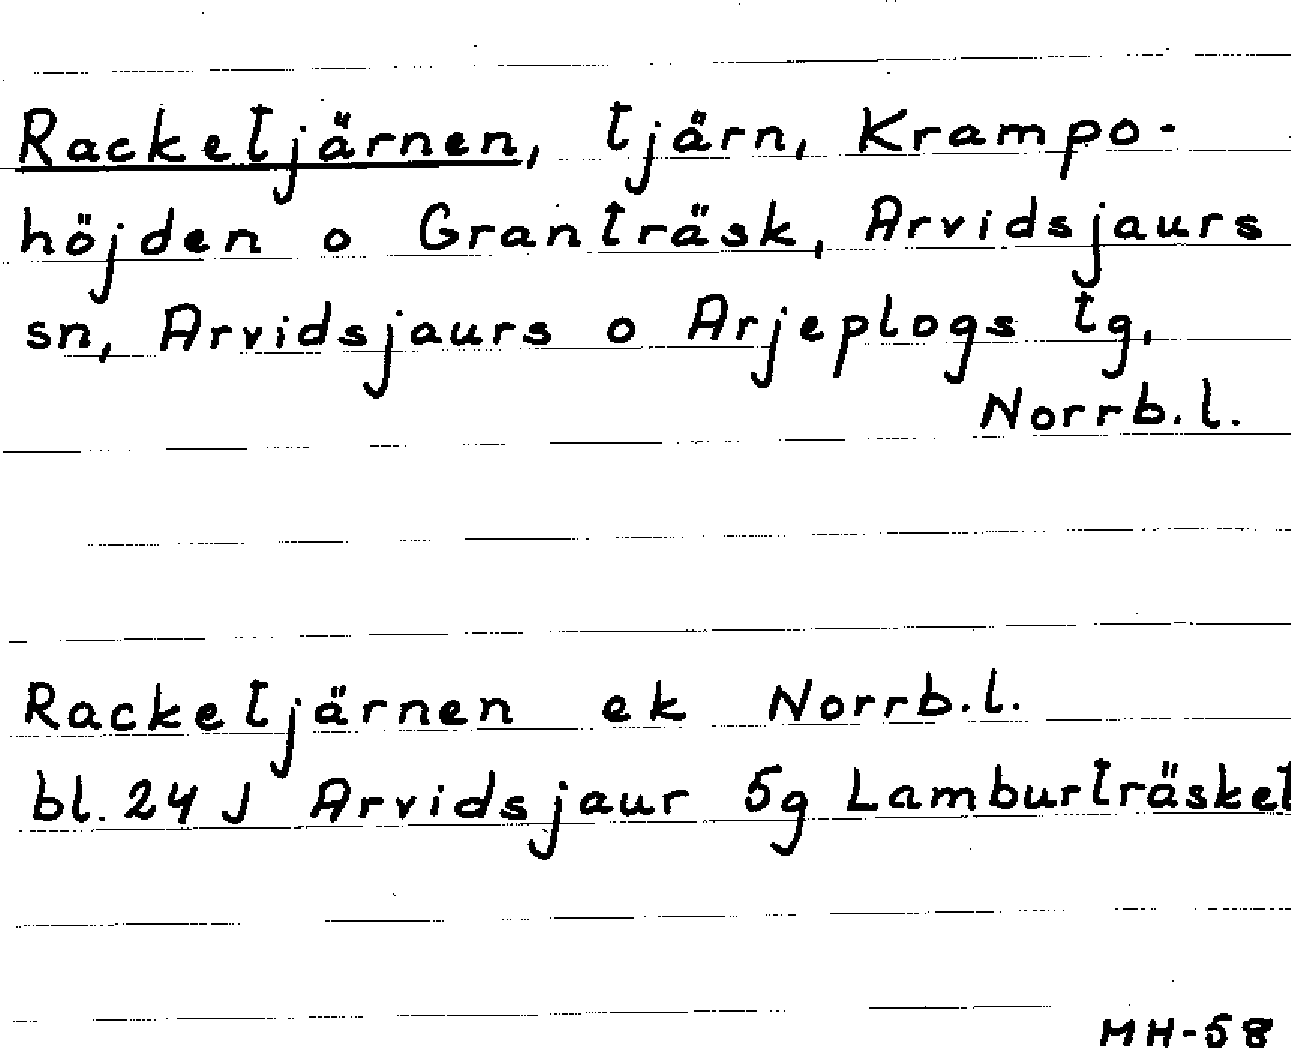 Racketjärnen, tjärn, Krampo-
höjden o Granträsk, Arvidsjaurs
sn, Arvidsjaurs o Arjeplogs tg,
Norrb.l.
Racketjärnen ek Norrb.l.
bl. 24 J Arvidsjaur 5g Lamburträsket
MH-58